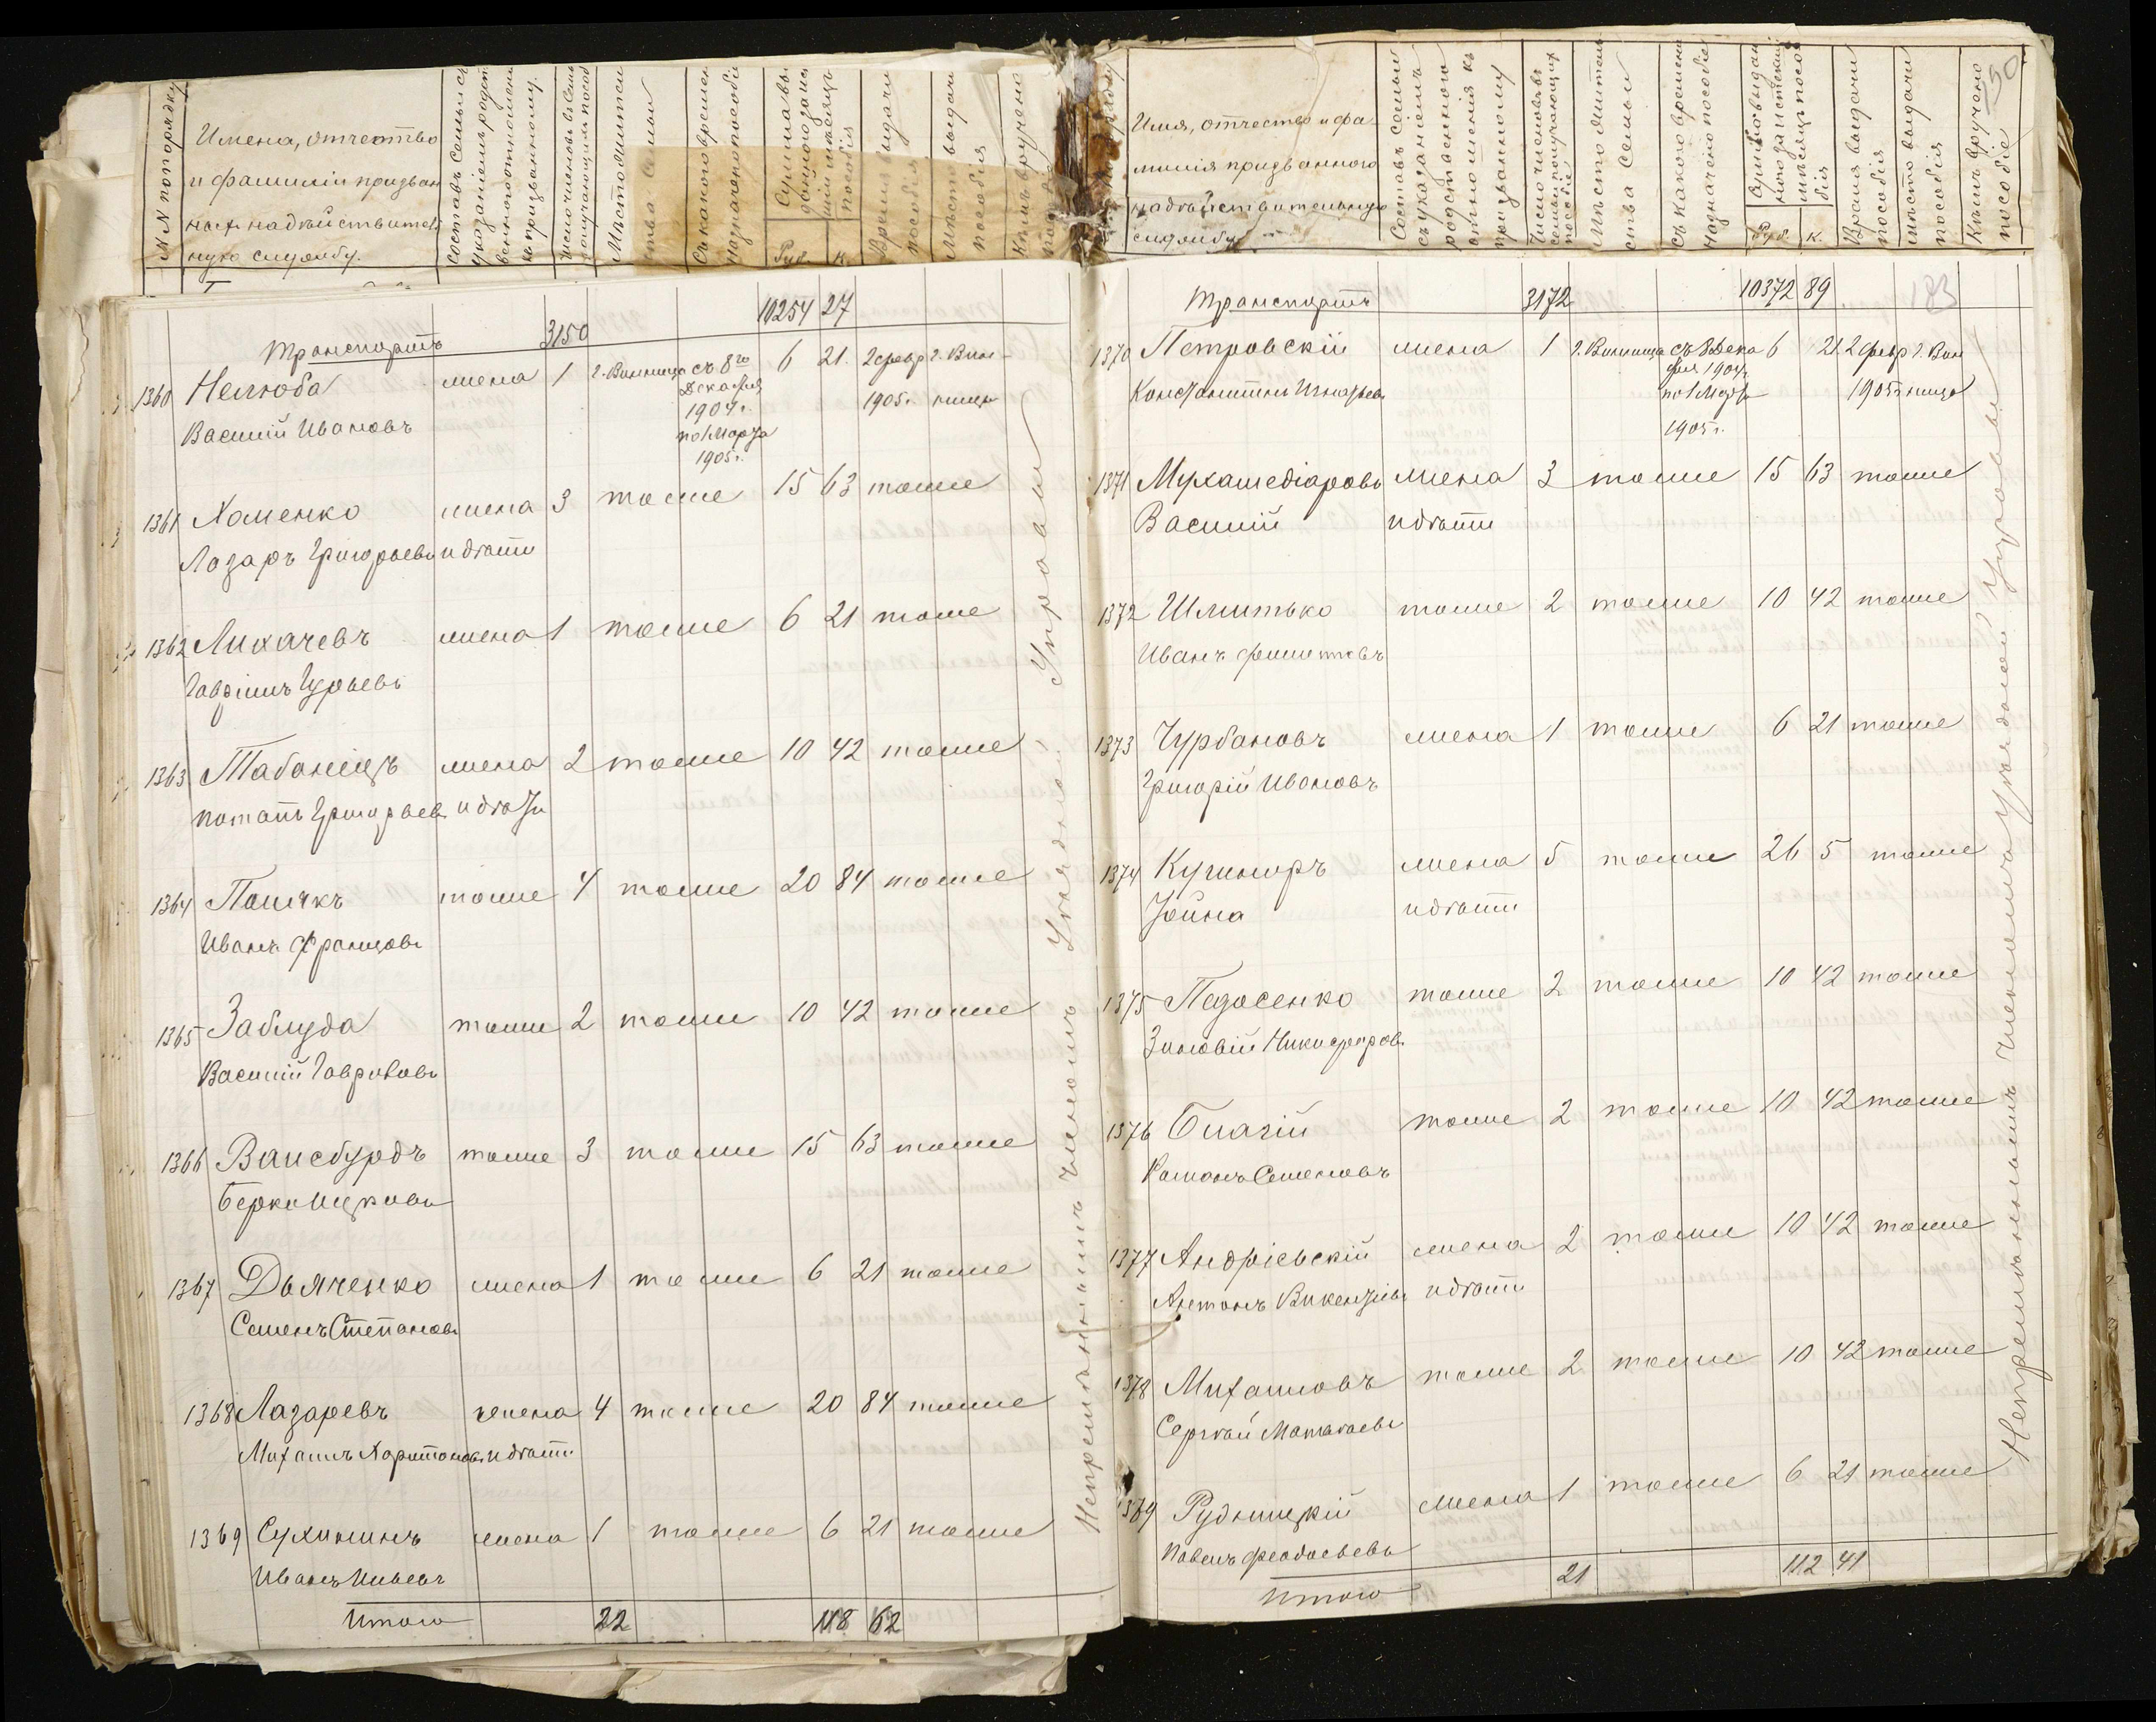 № № по порядку
Имена, отчество
и фамиліи призван
ных на дѣйствитель
ную службу.
Составъ семьи съ
указаніемъ родст
веннаго отношенія
къ призванному.
Мѣсто житель
ства семьи
Съ какого времени
назначено пособіе
Руб. К.
Время выдачи
пособія
Мѣсто выдачи
пособія
Кѣмъ вручено
Транспортъ 3150 10254 27
1360 Нелюба жена 1 г. Винница съ 8го 6 21. 2 февр г. Вин-
Декабря 1905 г. ница
Василій Ивановъ 1904 г.
по 1 Марта
1905 г.
1361 Хоменко жена 3 тоже 15 63 тоже
Лазарь Григорьевъ и дѣти
1362 Лихачевъ жена 1 тоже 6 21 тоже
Гавріилъ Гурьевъ
1363 Табанецъ жена 2 тоже 10 42 тоже
Потапъ Григорьев и дѣти
1364 тоже 4 тоже 20 84 тоже
Иванъ Францовъ
1365 Заблуда тоже 2 тоже 10 42 тоже
Василій Гавриловъ
1366 Вайсбурдъ тоже 3 тоже 15 63 тоже
Берко Ицковъ
1367 Дьяченко жена 1 тоже 6 21 тоже
Семенъ Степановъ
1368 Лазаревъ жена 4 тоже 20 84 тоже
Михаилъ Харитоновъ и дѣти
1369 Сухининъ жена 1 тоже 6 21 тоже
Иванъ
Итого 22 118 62
Непремѣннымъ членомъ Уѣздной Управы
Имя, отчество и фа-
милія призваннаго
на дѣйствительную
службу
Составъ семьи
съ указаніемъ
родственнаго
отношенія къ
призванному
Число членовъ
семьи получающихъ
пособіе
Мѣсто житель
ства семьи
Съ какого времени
назначено пособіе
Руб. К.
Время выдачи
пособія
Мѣсто выдачи
пособія
Кѣмъ вручено
пособіе
50
183
Транспортъ 3172 10372 89
1370 Петровскій жена 1 г. Винница съ 8 Дека 6 21 2 февр г. Вин
бря 1904 г.
Константинъ Игнатьевъ по 1 Марта 1905 г. ница
1905 г.
1371 Мухамедіаровъ жена 3 тоже 15 63 тоже
Василій и дѣти
1372 Шмитько тоже 2 тоже 10 42 тоже
Иванъ Филиповъ
1373 Чурбановъ жена 1 тоже 6 21 тоже
Григорій Ивановъ
1374 жена 5 тоже 26 5 тоже
и дѣти
1375 Педосенко тоже 2 тоже 10 42 тоже
Зиновій Никифоровъ
1376 тоже 2 тоже 10 42 тоже
Романъ Семеновъ
1377 Андріевскій жена 2 тоже 10 42 тоже
Антонъ Викентьевъ и дѣти
1378 Михаиловъ тоже 2 тоже 10 42 тоже
Сергѣй Матвѣевъ
1369 Рудницкій жена 1 тоже 6 21 тоже
Павелъ Феодосьевъ
Итого 21 112 41
Непремѣннымъ членомъ Уѣздной Управы